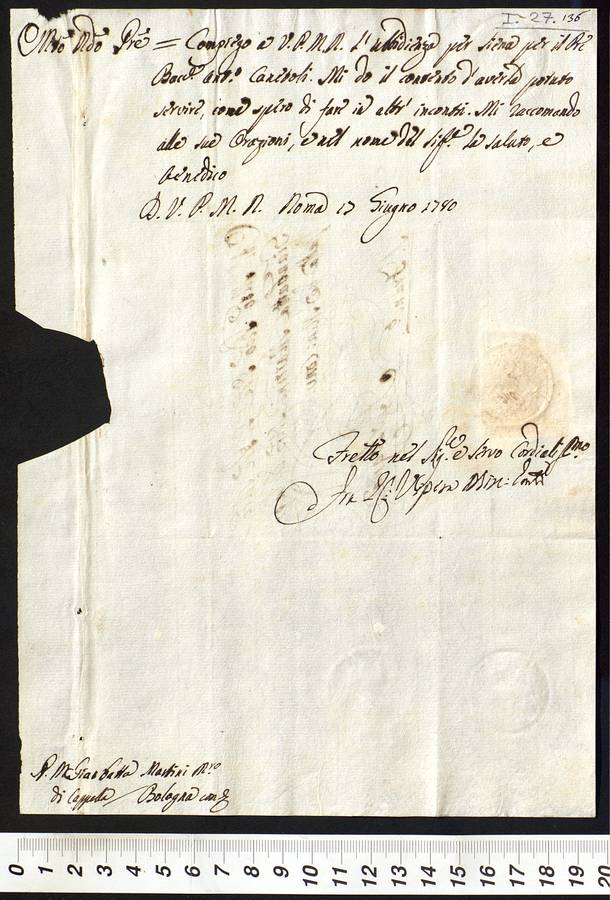 I. 27. 136
Mto Rdo Pre = Compiego a V. P. M. R. l'ubbidienza per Siena per il Pre
Baccre Anto Canedoli. Mi do il contento d'averla potuto
servire, come spero di fare in altri incontri. Mi raccomando
alle sue Orazioni, e nel nome del Siffco la saluto, e
benedico
D. V. P. M. R. Roma 17 Giugno 1780
Fretto nel Sige e Servo Cordialissmo
Fra Vipera Min: Conle
P. M. Gianbatta Martini Mro
di Cappella Bologna
0 1 2 3 4 5 6 7 8 9 10 11 12 13 14 15 16 17 18 19 20